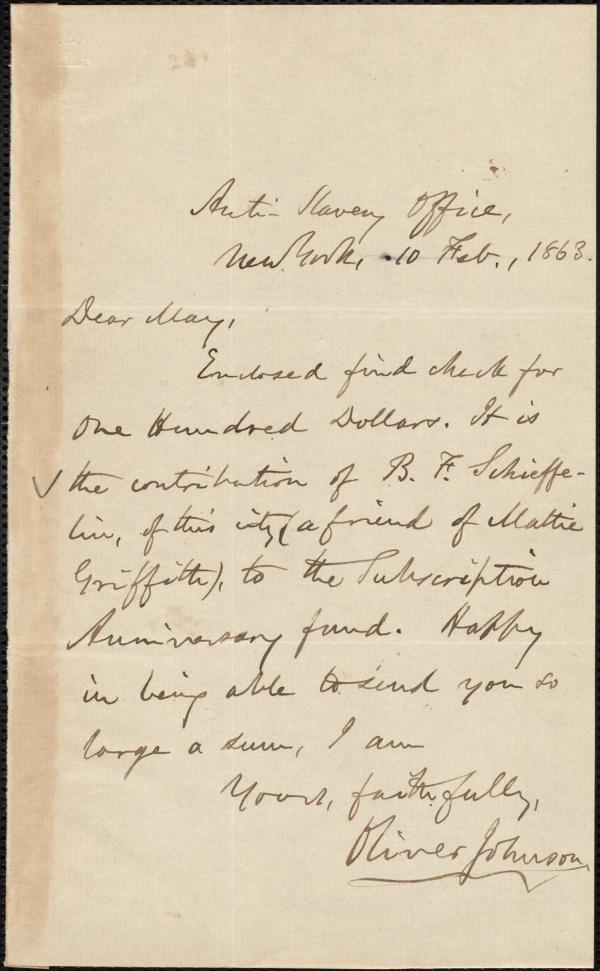 Anti-Slavery Office,
New York, 10 Feb., 1863.
Dear May,
Enclosed find check for
One Hundred Dollars. It is
the contribution of B. F. Schieffe-
lin, of this city (a friend of Mattie
Griffith), to the Subscription
Anniversary fund. Happy
in being able to send you so
large a sum, I am
Yours, faithfully,
Oliver Johnson.